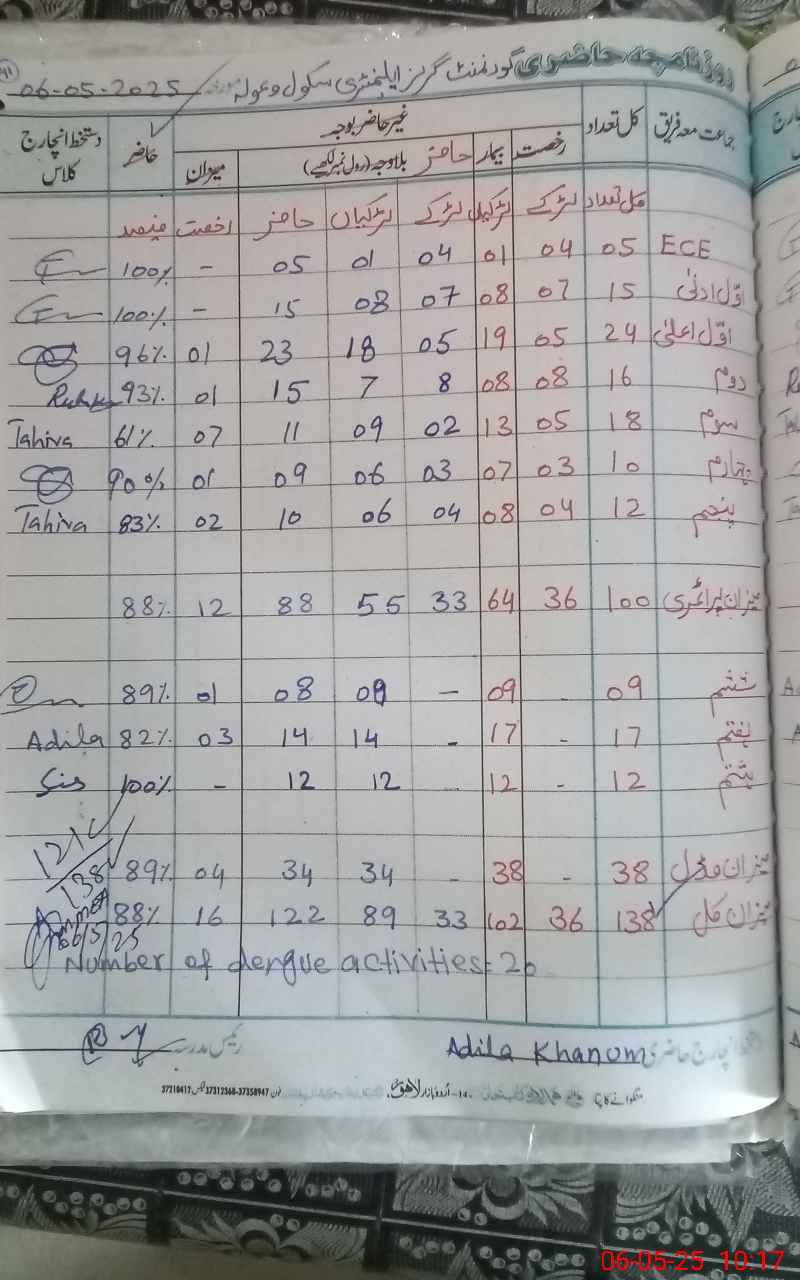 روزنامچہ حاضری گورنمنٹ گرلز ایلیمنٹری سکول وعولہ مورخہ 06-05-2025
جماعت معہ فریق کل تعداد غیر حاضر بوجہ حاضر دستخط انچارج کلاس
رخصت بیمار حاضر بلاوجہ (رول نمبر لکھیے) میزان
کل تعداد لڑکے لڑکیاں لڑکے لڑکیاں حاضر رخصت فیصد
ECE 05 04 01 04 01 05 - 100%
اوّل ادنیٰ 15 07 08 07 08 15 - 100%
اوّل اعلیٰ 24 05 19 05 18 23 01 96%
دوم 16 08 08 8 7 15 01 93%
سوم 18 05 13 02 09 11 07 61% Tahira
چہارم 10 03 07 03 06 09 01 90%
پنجم 12 04 08 04 06 10 02 83% Tahira
میزان پرائمری 100 36 64 33 55 88 12 88%
ششم 09 - 09 - 09 08 01 89%
ہفتم 17 - 17 - 14 14 03 82% Adila
ہشتم 12 - 12 - 12 12 - 100%
میزان مڈل 38 - 38 - 34 34 04 89%
میزان کل 138 36 102 33 89 122 16 88%
138
Number of dengue activities= 20
انچارج حاضری Adila Khanom رئیس مدرسہ
منگوانے کا پتہ 14- اُردو بازار لاہور فون 37358947-37312368 فیکس 37210412
06-05-25 10:17